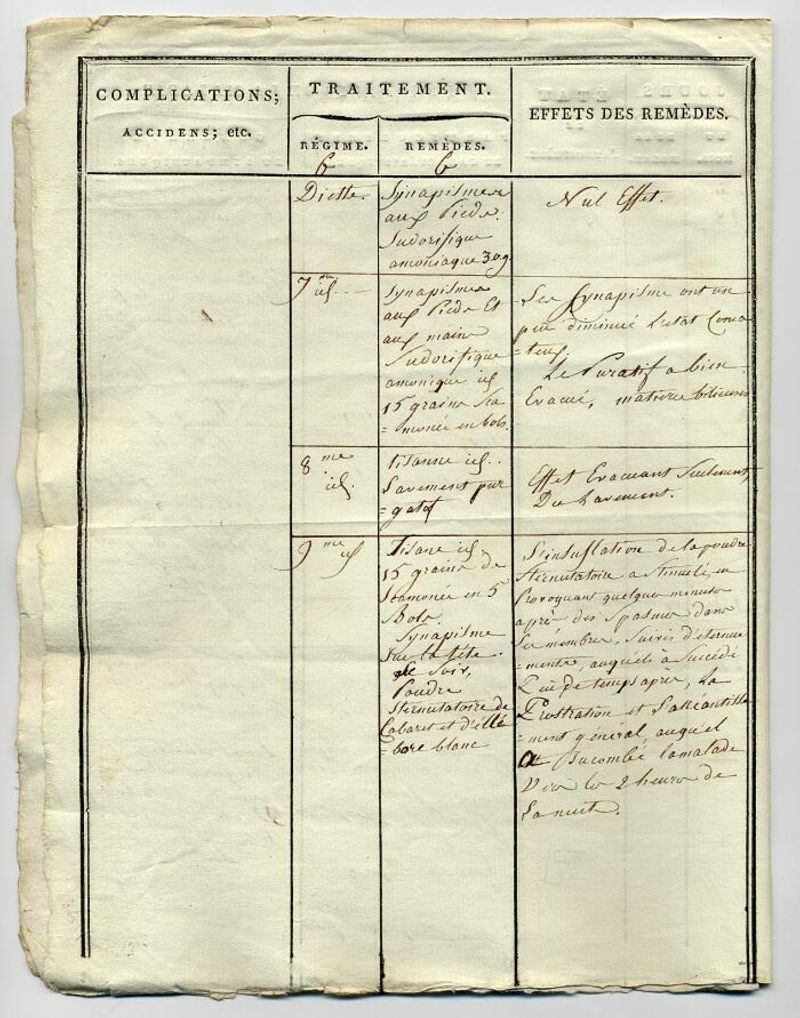 COMPLICATIONS;
ACCIDENS; etc.
TRAITEMENT.
RÉGIME.
REMÈDES.
EFFETS DES REMÈDES.
6
6
Diette.
Synapismes
aux Pieds.
Sudorifique
amoniaque 30g
Nul Effet.
7me
id.
Synapismes
aux Pieds Et
aux mains
Sudorifique
amonique id
15 grains Sca
= monée en bols.
Les Synapisme ont un
peu diminué L'etat Coma
= teux.
Le Puratif a bien
Evacué, matieres bilieuses
8me
id.
Tisanne id..
Lavement pur
= gatif
Effet Evacuant Seulement,
Du Lavement.
9me
id
Tisane id,
15 grains de
Scamonée en 5
Bols.
Synapisme
sur la tête.
Le Soir,
Poudre
Sternutatoire de
Cabaret et d'éllé
= bore blanc
L'insuflation de la poudre
Sternutatoire a Stimulé, en
Provoquant quelques minutes
après des Spasmes dans
Les membres, Suivis d'eternue
= ments, auquels à Succédé
de temps après, La
Prostration et Lanéantisse
= ment général, auquel
a Sucombée lamalade
Vers les 2 heures de
La nuit.